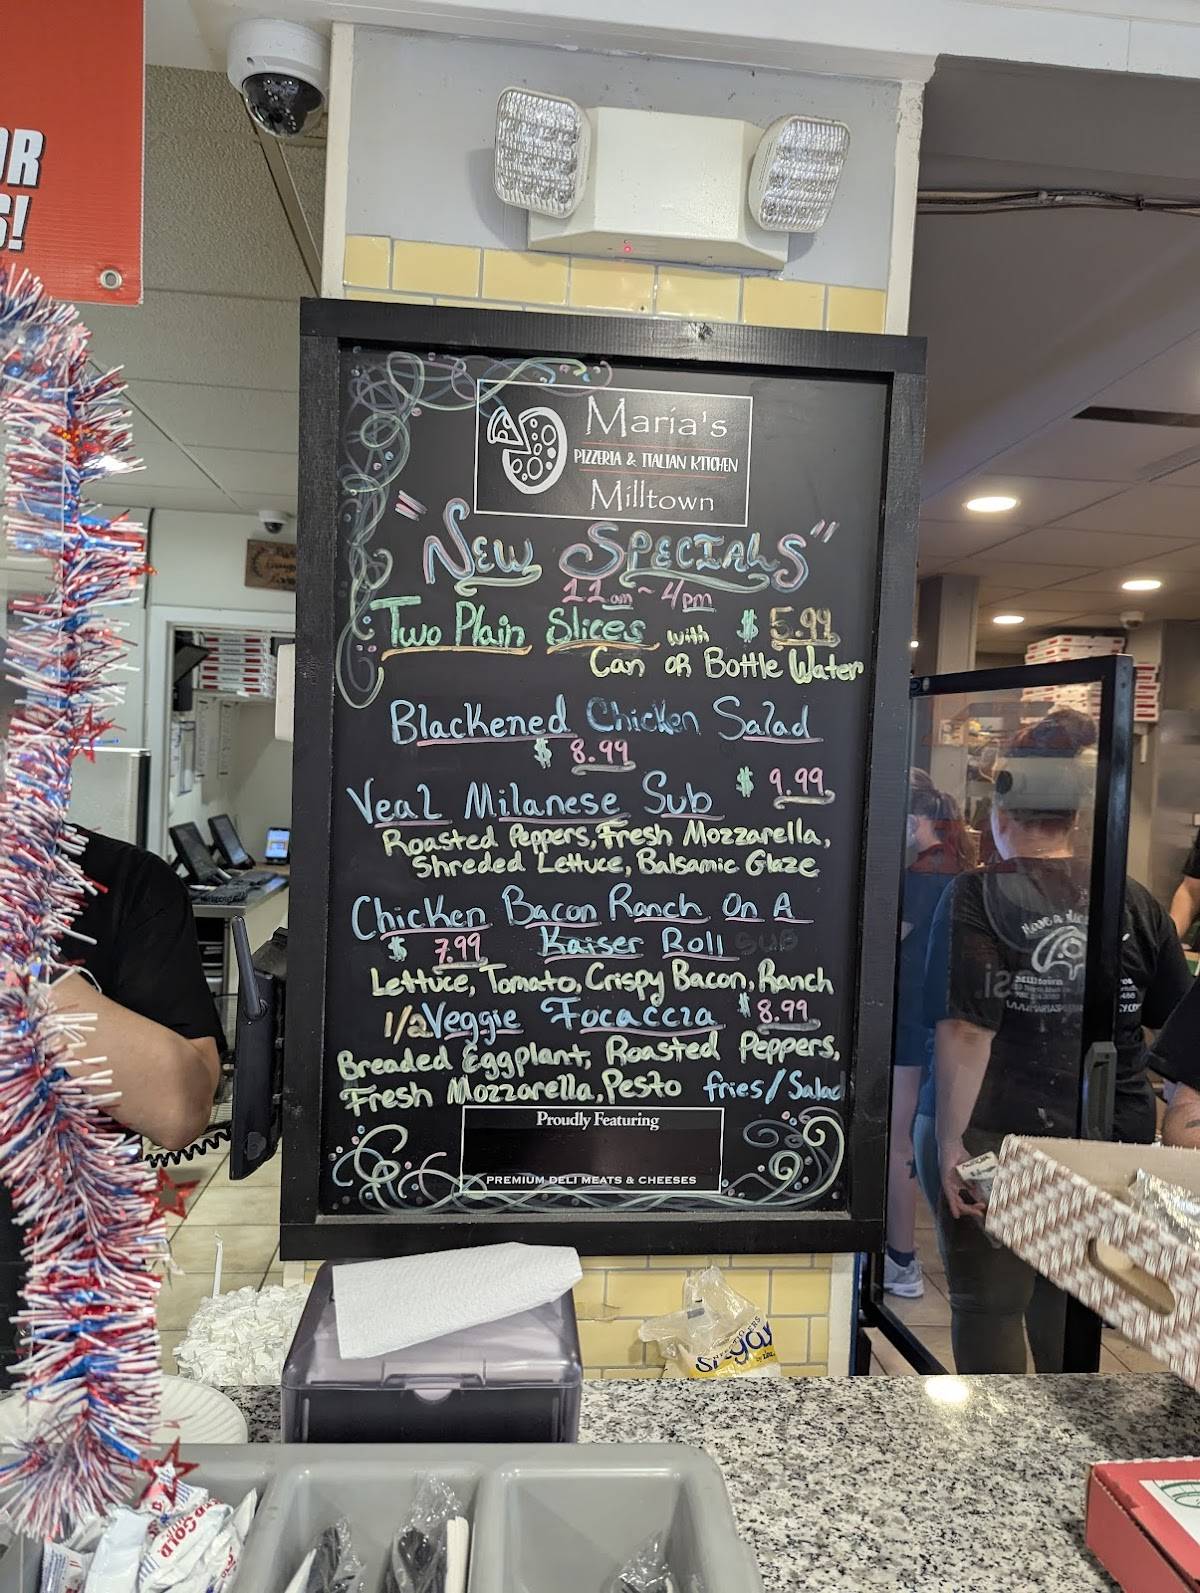 OR
S!
Maria's
PIZZERIA & ITALIAN KITCHEN
Milltown
"New Specials"
11am ~ 4pm
Two Plain Slices with $5.99
Can or Bottle Water
Blackened Chicken Salad
$ 8.99
Veal Milanese Sub $9.99
Roasted Peppers, Fresh Mozzarella,
Shreded Lettuce, Balsamic Glaze
Chicken Bacon Ranch On A
$ 7.99 Kaiser Roll SUB
Lettuce, Tomato, Crispy Bacon, Ranch
1/2 Veggie Focaccia $8.99
Breaded Eggplant, Roasted Peppers,
Fresh Mozzarella, Pesto fries/Salad
Proudly Featuring
PREMIUM DELI MEATS & CHEESES
Have a
Milltown
Sugar
GOLD